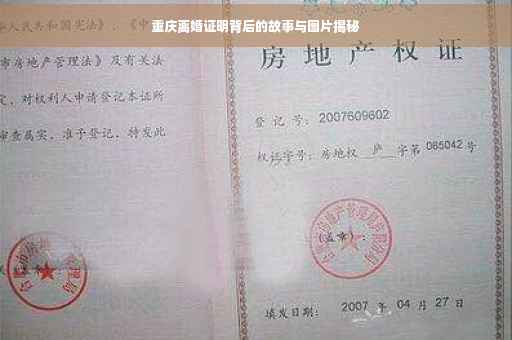 重庆离婚证明背后的故事与图片揭秘
华人民共和国宪法》、
市房地产管理法》及有关法
定，对权利人申请登记本证所
审查属实，准予登记，特发此
房地产权证
登记号：2007609602
权证字号：房地权 庐 字第 065042 号
(盖章)：
填发日期：2007 年 04 月 27 日